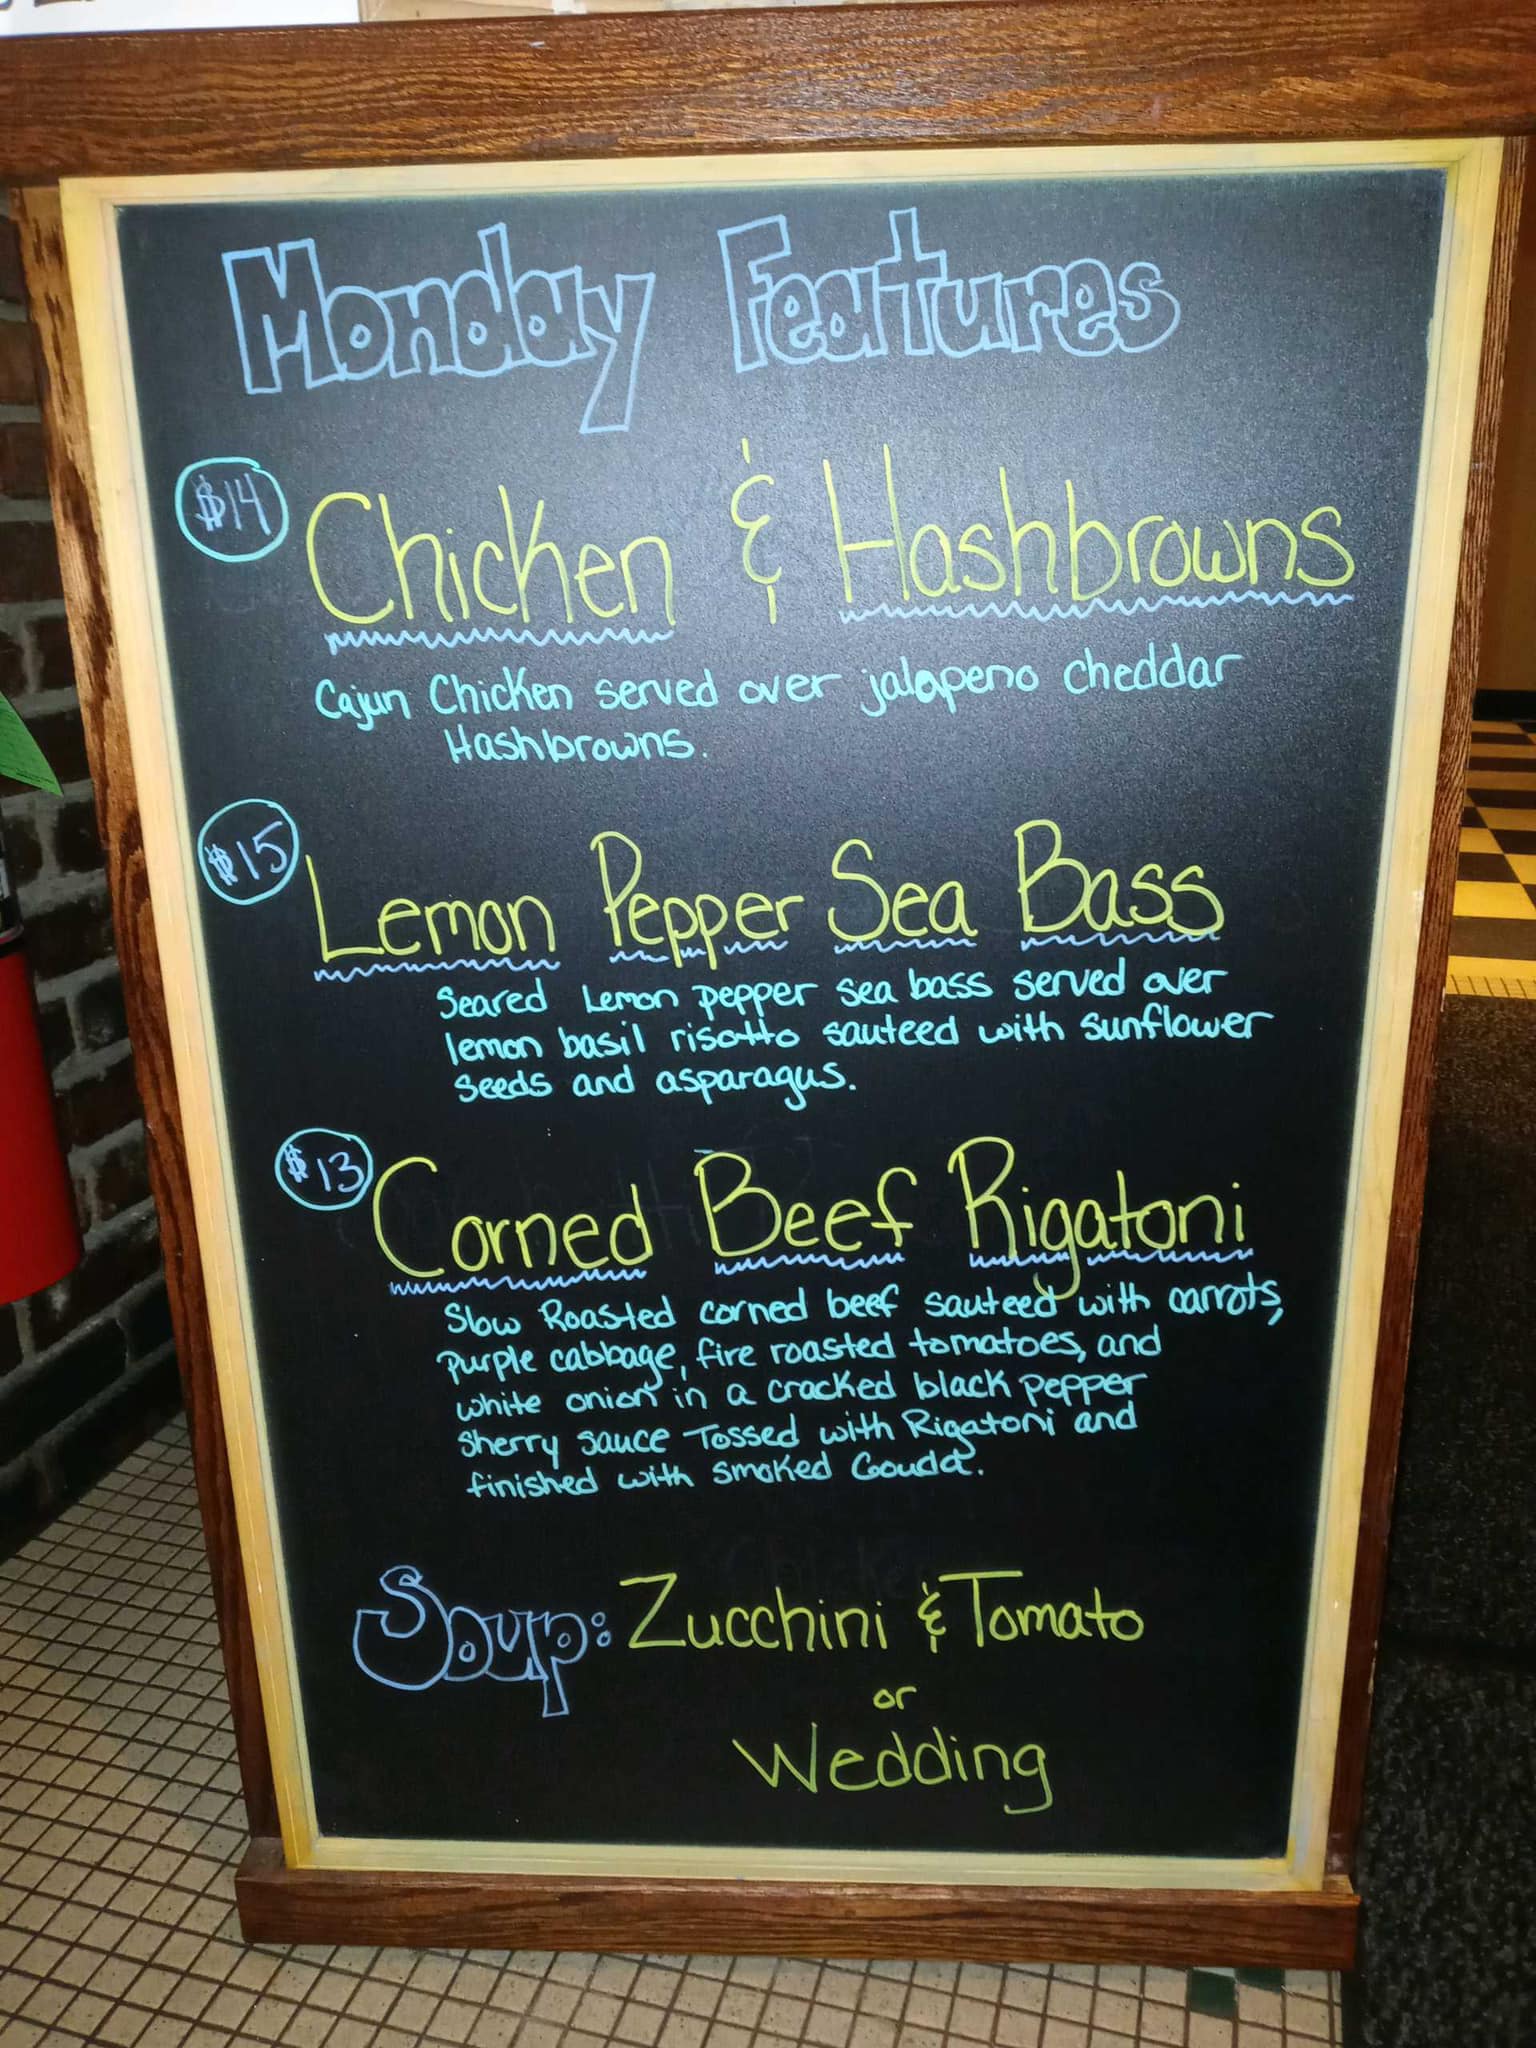 Monday Features
$14
Chicken & Hashbrowns
Cajun Chicken served over jalapeno cheddar
Hashbrowns.
$15
Lemon Pepper Sea Bass
Seared Lemon pepper sea bass served over
lemon basil risotto sauteed with sunflower
seeds and asparagus.
$13
Corned Beef Rigatoni
Slow Roasted corned beef sauteed with carrots,
purple cabbage, fire roasted tomatoes, and
white onion in a cracked black pepper
sherry sauce Tossed with Rigatoni and
finished with smoked Gouda.
Soup: Zucchini & Tomato
or
Wedding